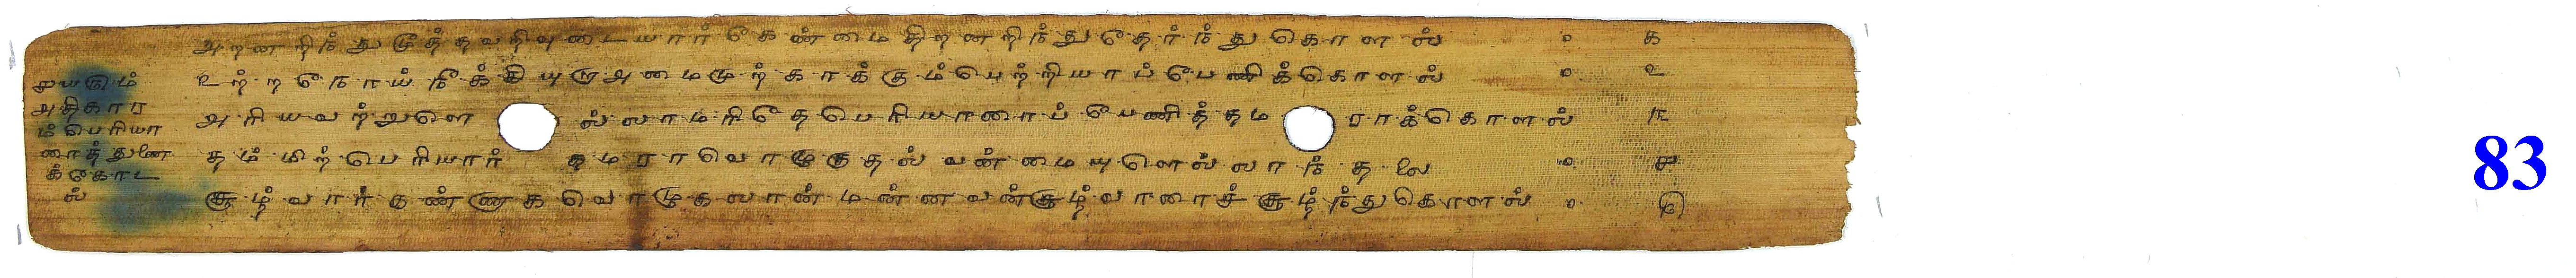 ௪௰௫ம்
அதிகார
ம் பெரியா
ரைத்துணை
க்கோட
ல்
அறனறிந்துமூத்தவறிவுடையார்கேண்மைதிறனறிந்துதேர்ந்துகொளல் ௦ ௧
உற்றநோய்நீக்கியுறாஅமைமுற்காக்கும்பெற்றியார்ப்பேணிக்கொளல் ௦ ௨
அரியவற்றுளெல்லாமரிதேபெரியாரைப்பேணித்தமராக்கொளல் ௩
தம்மிற்பெரியார் தமராவொழுகுதல் வன்மையுளெல்லாந்தலை ௦ ௪
சூழ்வார்கண்ணாகவொழுகலான்மன்னவன்சூழ்வாரைச்சூழ்ந்துகொளல் ௦ ௫
83